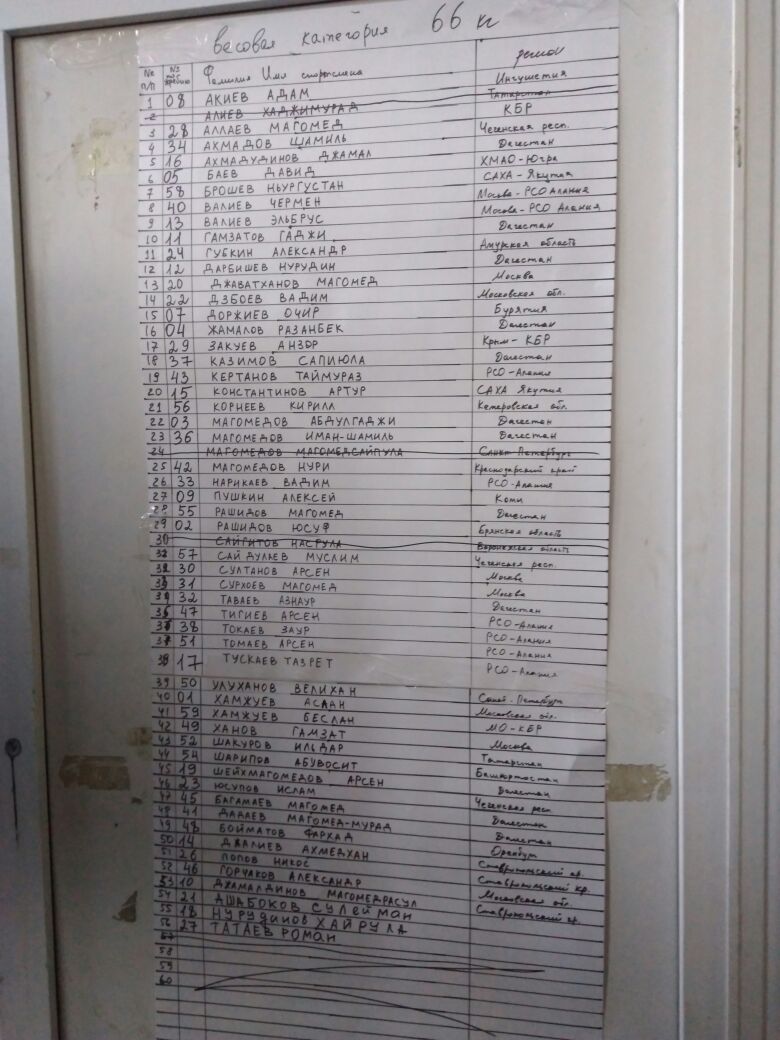 весовая категория 66 кг
№ п/п № жребию Фамилия Имя спортсмена регион
1 08 АКИЕВ АДАМ Ингушетия
2 АЛИЕВ ХАДЖИМУРАД Татарстан
3 28 АЛЛАЕВ МАГОМЕД КБР
4 34 АХМАДОВ ШАМИЛЬ Чеченская респ.
5 16 АХМАДУДИНОВ ДЖАМАЛ Дагестан
6 05 БАЕВ ДАВИД ХМАО-Югра
7 58 БРОШЕВ НЬУРГУСТАН САХА-Якутия
8 40 ВАЛИЕВ ЧЕРМЕН Москва-РСО Алания
9 13 ВАЛИЕВ ЭЛЬБРУС Москва-РСО Алания
10 11 ГАМЗАТОВ ГАДЖИ Дагестан
11 24 ГУБКИН АЛЕКСАНДР Амурская область
12 12 ДАРБИШЕВ НУРУДИН Дагестан
13 20 ДЖАВАТХАНОВ МАГОМЕД Москва
14 22 ДЗБОЕВ ВАДИМ Московская обл.
15 07 ДОРЖИЕВ ОЧИР Бурятия
16 04 ЖАМАЛОВ РАЗАНБЕК Дагестан
17 29 ЗАКУЕВ АНЗОР Крым-КБР
18 37 КАЗИМОВ САПИЮЛА Дагестан
19 43 КЕРТАНОВ ТАЙМУРАЗ РСО-Алания
20 15 КОНСТАНТИНОВ АРТУР САХА Якутия
21 56 КОРНЕЕВ КИРИЛЛ Кемеровская обл.
22 03 МАГОМЕДОВ АБДУЛГАДЖИ Дагестан
23 36 МАГОМЕДОВ ИМАН-ШАМИЛЬ Дагестан
24 МАГОМЕДОВ МАГОМЕДСАЙПУЛА Санкт-Петербург
25 42 МАГОМЕДОВ НУРИ Краснодарский край
26 33 НАРИКАЕВ ВАДИМ РСО-Алания
27 09 ПУШКИН АЛЕКСЕЙ Коми
28 55 РАШИДОВ МАГОМЕД Дагестан
29 02 РАШИДОВ ЮСУФ Брянская область
30 САЙГИТОВ НАСРУЛА Воронежская область
57 САЙДУЛАЕВ МУСЛИМ Чеченская респ.
30 СУЛТАНОВ АРСЕН Москва
31 СУРХОЕВ МАГОМЕД Москва
32 ТАВАЕВ АЗНАУР Дагестан
47 ТИГИЕВ АРСЕН РСО-Алания
38 ТОКАЕВ ЗАУР РСО-Алания
51 ТОМАЕВ АРСЕН РСО-Алания
17 ТУСКАЕВ ТАЗРЕТ РСО-Алания
39 50 УЛУХАНОВ ВЕЛИХАН
40 01 ХАМЖУЕВ АСЛАН Санкт-Петербург
41 59 ХАМЖУЕВ БЕСЛАН Московская обл.
42 49 ХАНОВ ГАМЗАТ МО-КБР
43 52 ШАКУРОВ ИЛЬДАР Москва
44 54 ШАРИПОВ АБУВОСИТ Татарстан
45 19 ШЕЙХМАГОМЕДОВ АРСЕН Башкортостан
46 23 ЮСУПОВ ИСЛАМ Дагестан
47 45 БАГАМАЕВ МАГОМЕД Чеченская респ
48 41 ДАДАЕВ МАГОМЕД-МУРАД Дагестан
49 48 БОЙМАТОВ ФАРХАД Дагестан
50 14 ДЖАЛИЕВ АХМЕДХАН Оренбург
51 26 ПОПОВ НИКОС Ставропольский кр.
52 46 ГОРЧАКОВ АЛЕКСАНДР Ставропольский кр.
53 10 ДЖАМАЛДИНОВ МАГОМЕДРАСУЛ Московская обл
54 21 АШАБОКОВ СУЛЕЙМАН Ставропольский кр.
55 18 НУРУДИНОВ ХАЙРУЛА
56 27 ТАТАЕВ РОМАН
57
58
59
60